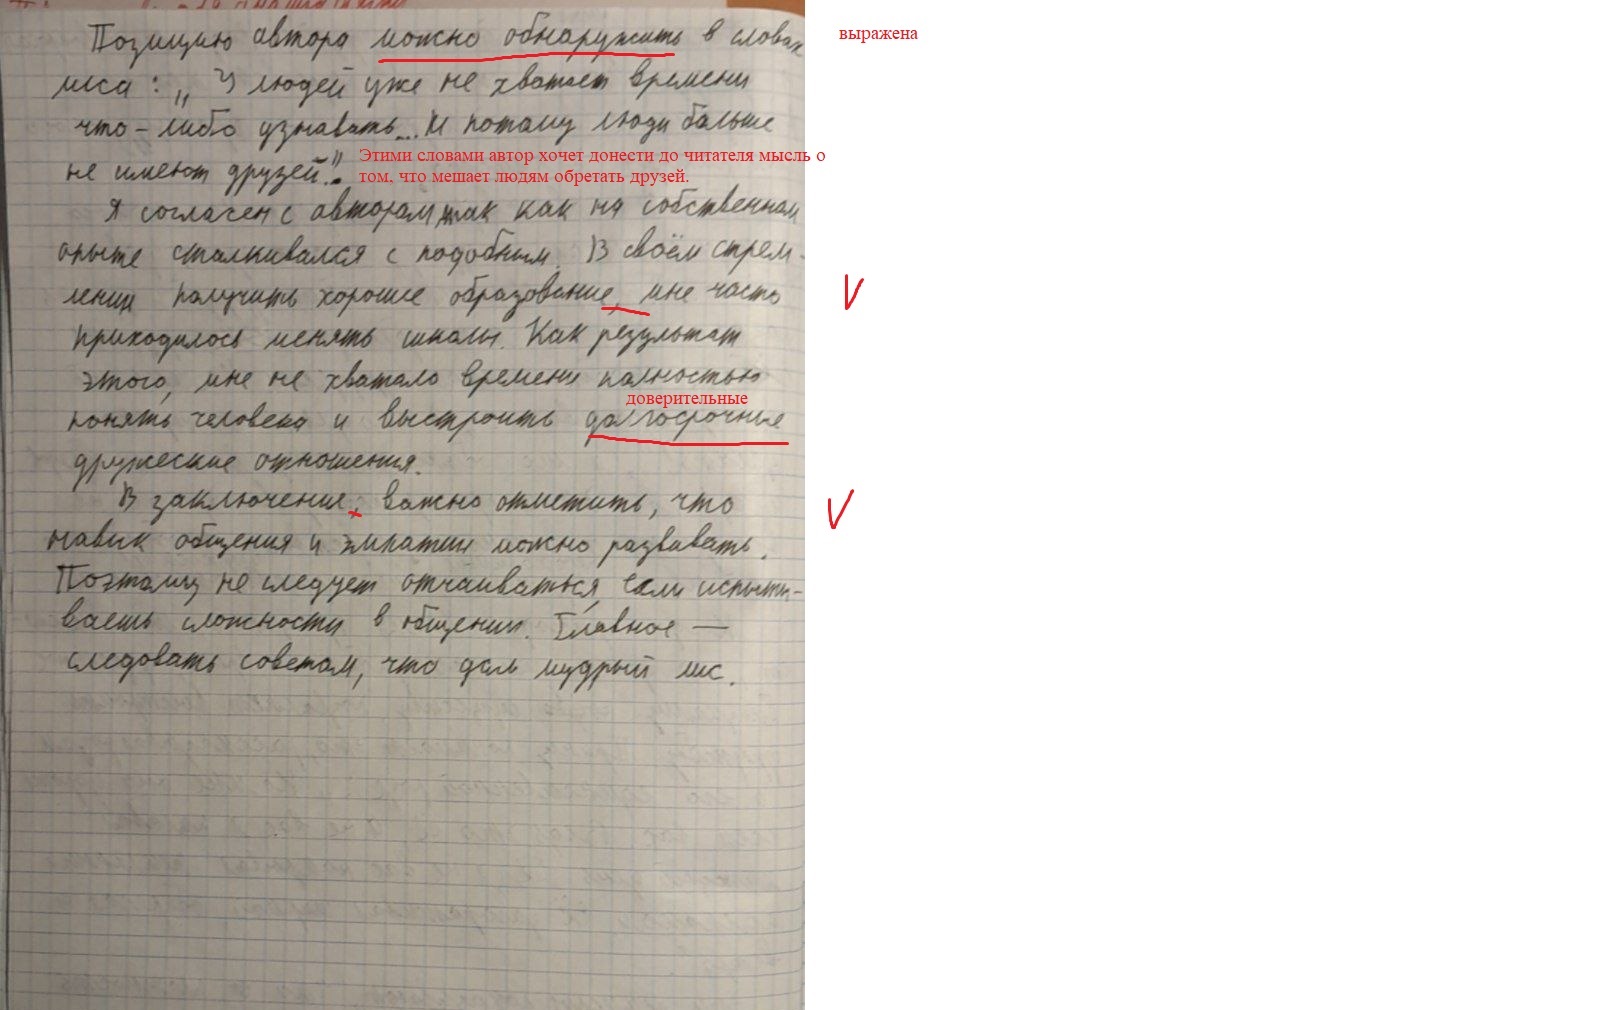 Позицию автора можно обнаружить в словах
выражена
лиса: „У людей уже не хватает времени
что-либо узнавать... И потому люди больше
не имеют друзей".
Этими словами автор хочет донести до читателя мысль о
том, что мешает людям обретать друзей.
Я согласен с автором, так как на собственном
опыте сталкивался с подобным. В своём стрем-
лении получить хорошее образование, мне часто
приходилось менять школы. Как результат
этого, мне не хватало времени полностью
доверительные
понять человека и выстроить долгосрочные
дружеские отношения.
В заключение, важно отметить, что
навык общения и эмпатии можно развивать.
Поэтому не следует отчаиваться, если испыты-
ваешь сложности в общении. Главное —
следовать советам, что дал мудрый лис.